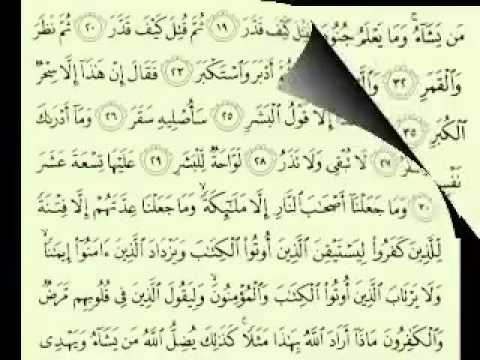 مَن يَشَآءُ وَمَا يَعْلَمُ كَيْفَ قَدَّرَ ١٩ ثُمَّ قُتِلَ كَيْفَ قَدَّرَ ٢٠ ثُمَّ نَظَرَ
وَٱلْقَمَرِ ٣٢ أَدْبَرَ وَٱسْتَكْبَرَ ٢٣ فَقَالَ إِنْ هَٰذَآ إِلَّا سِحْرٌ
ٱلْكُبَرِ ٣٥ إِلَّا قَوْلُ ٱلْبَشَرِ ٢٥ سَأُصْلِيهِ سَقَرَ ٢٦ وَمَآ أَدْرَىٰكَ
نَفْسٍۭ ٢٧ لَا تُبْقِى وَلَا تَذَرُ ٢٨ لَوَّاحَةٌ لِّلْبَشَرِ ٢٩ عَلَيْهَا تِسْعَةَ عَشَرَ
٣٠ وَمَا جَعَلْنَآ أَصْحَٰبَ ٱلنَّارِ إِلَّا مَلَٰٓئِكَةً ۙ وَمَا جَعَلْنَا عِدَّتَهُمْ إِلَّا فِتْنَةً
لِّلَّذِينَ كَفَرُوا۟ لِيَسْتَيْقِنَ ٱلَّذِينَ أُوتُوا۟ ٱلْكِتَٰبَ وَيَزْدَادَ ٱلَّذِينَ ءَامَنُوٓا۟ إِيمَٰنًا ۙ
وَلَا يَرْتَابَ ٱلَّذِينَ أُوتُوا۟ ٱلْكِتَٰبَ وَٱلْمُؤْمِنُونَ ۙ وَلِيَقُولَ ٱلَّذِينَ فِى قُلُوبِهِم مَّرَضٌ
وَٱلْكَٰفِرُونَ مَاذَآ أَرَادَ ٱللَّهُ بِهَٰذَا مَثَلًا ۚ كَذَٰلِكَ يُضِلُّ ٱللَّهُ مَن يَشَآءُ وَيَهْدِى